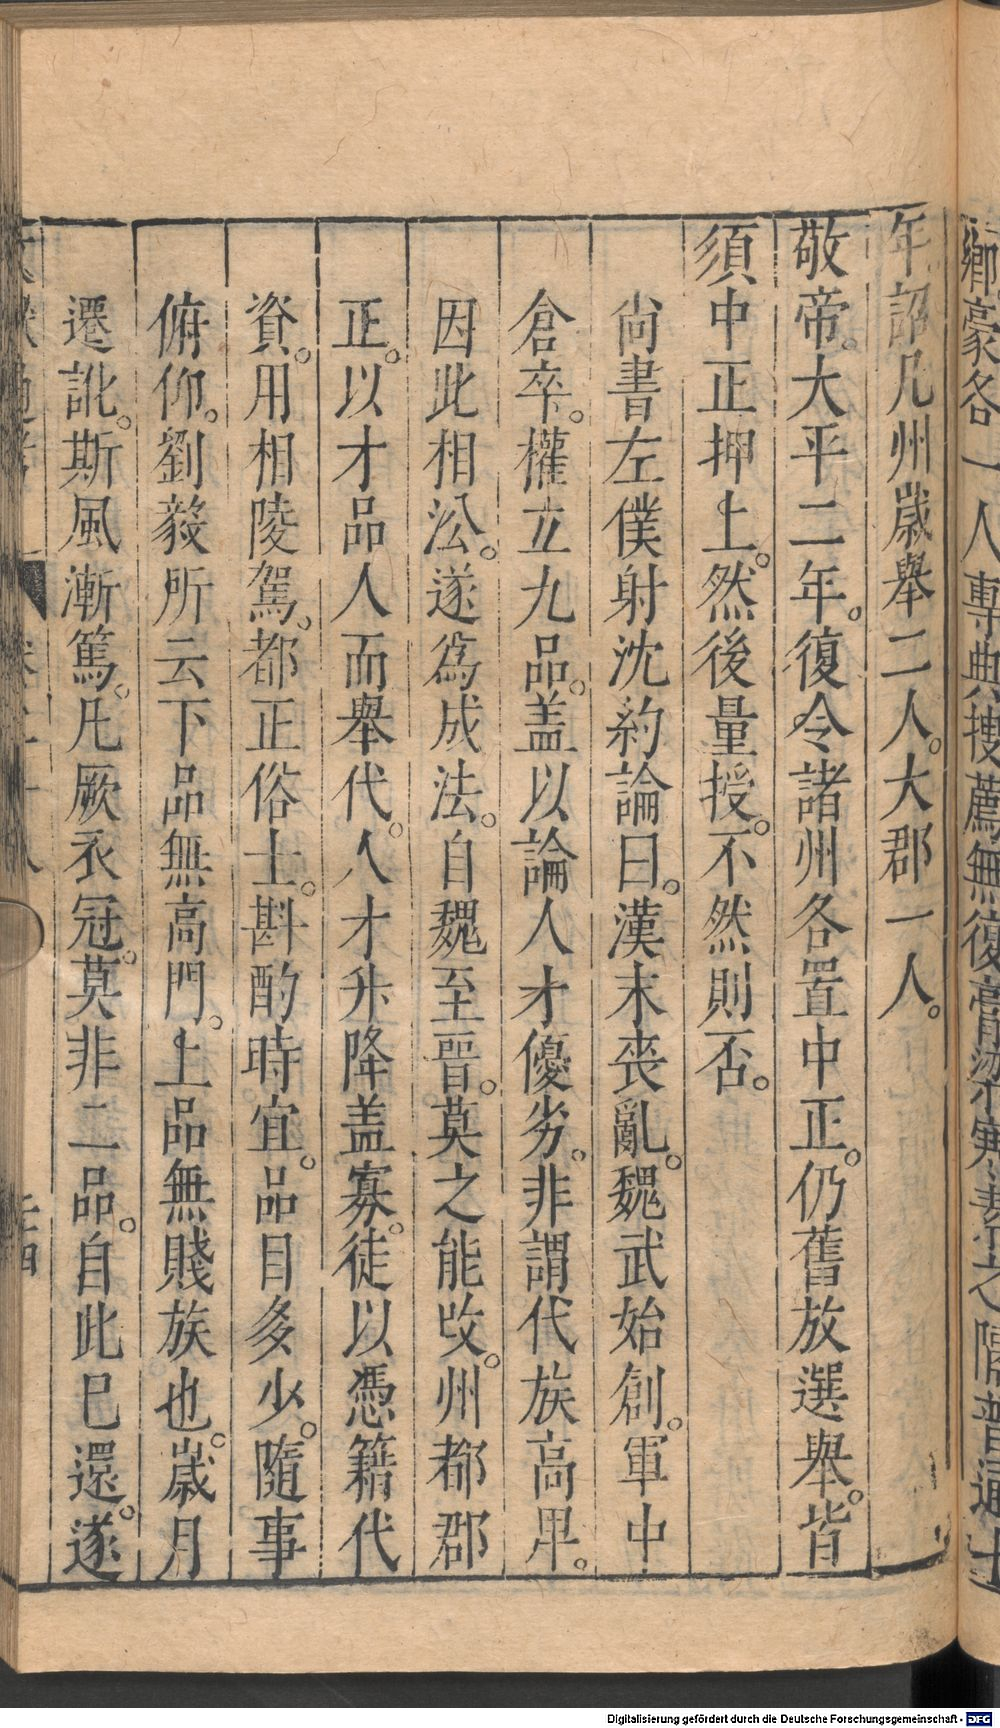 鄉豪各一人專典搜薦無復膏粱寒素之隔普通七
年詔凡州歲舉二人。大郡一人。
敬帝。大平二年。復令諸州各置中正。仍舊放選舉。皆
須中正押上。然後量授。不然則否。
尙書左僕射沈約論曰。漢末喪亂。魏武始創。軍中
倉卒。權立九品。盖以論人才優劣。非謂代族高卑。
因此相㳂。遂爲成法。自魏至晉。莫之能改。州都郡
正。以才品人而舉代。人才升降盖寡。徒以憑籍代
資。用相陵駕。都正俗士。斟酌時宜。品目多少。隨事
俯仰。劉毅所云下品無高門。上品無賤族也。歲月
遷訛。斯風漸篤。凡厥衣冠。莫非二品。自此已還。遂
Digitalisierung gefördert durch die Deutsche Forschungsgemeinschaft - DFG